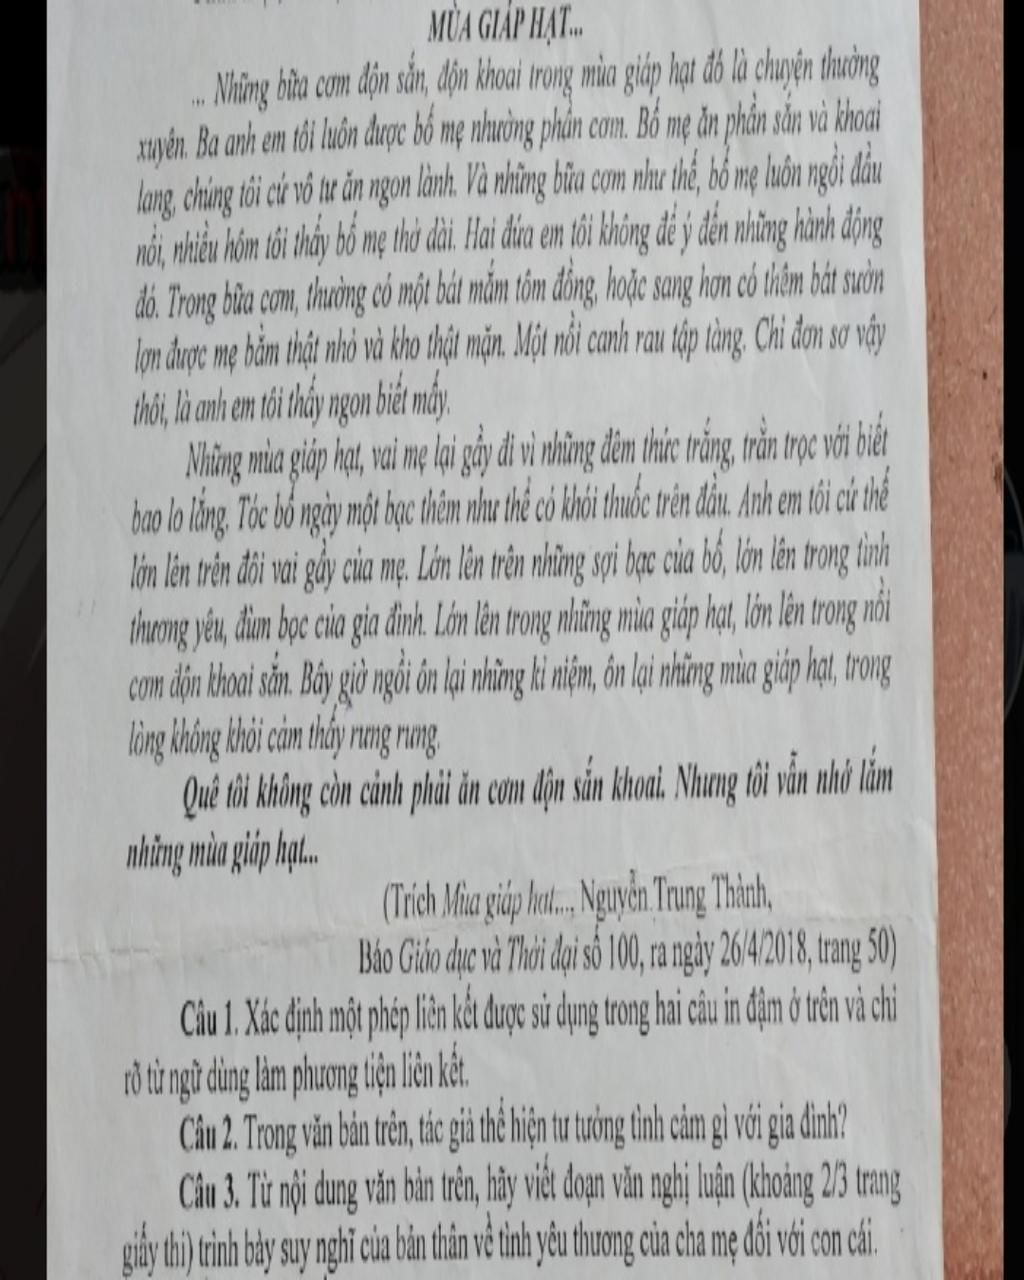 MÙA GIÁP HẠT...
... Những bữa cơm độn sắn, độn khoai trong mùa giáp hạt đó là chuyện thường
xuyên. Ba anh em tôi luôn được bố mẹ nhường phần cơm. Bố mẹ ăn phần sắn và khoai
lang, chúng tôi cứ vô tư ăn ngon lành. Và những bữa cơm như thế, bố mẹ luôn ngồi đầu
nồi, nhiều hôm tôi thấy bố mẹ thở dài. Hai đứa em tôi không để ý đến những hành động
đó. Trong bữa cơm, thường có một bát mắm tôm đồng, hoặc sang hơn có thêm bát sườn
lợn được mẹ bằm thật nhỏ và kho thật mặn. Một nồi canh rau tập tàng. Chỉ đơn sơ vậy
thôi, là anh em tôi thấy ngon biết mấy.
Những mùa giáp hạt, vai mẹ lại gầy đi vì những đêm thức trắng, trằn trọc với biết
bao lo lắng. Tóc bố ngày một bạc thêm như thể có khói thuốc trên đầu. Anh em tôi cứ thế
lớn lên trên đôi vai gầy của mẹ. Lớn lên trên những sợi bạc của bố, lớn lên trong tình
thương yêu, đùm bọc của gia đình. Lớn lên trong những mùa giáp hạt, lớn lên trong nồi
cơm độn khoai sắn. Bây giờ ngồi ôn lại những kỉ niệm, ôn lại những mùa giáp hạt, trong
lòng không khỏi cảm thấy rưng rưng.
Quê tôi không còn cảnh phải ăn cơm độn sắn khoai. Nhưng tôi vẫn nhớ lắm
những mùa giáp hạt...
(Trích Mùa giáp hạt..., Nguyễn Trung Thành,
Báo Giáo dục và Thời đại số 100, ra ngày 26/4/2018, trang 50)
Câu 1. Xác định một phép liên kết được sử dụng trong hai câu in đậm ở trên và chỉ
rõ từ ngữ dùng làm phương tiện liên kết.
Câu 2. Trong văn bản trên, tác giả thể hiện tư tưởng tình cảm gì với gia đình?
Câu 3. Từ nội dung văn bản trên, hãy viết đoạn văn nghị luận (khoảng 2/3 trang
giấy thi) trình bày suy nghĩ của bản thân về tình yêu thương của cha mẹ đối với con cái.